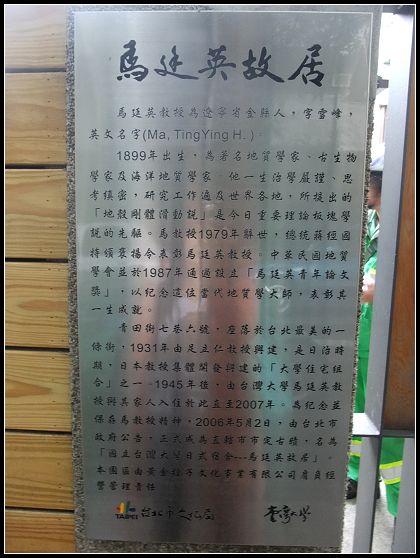 馬廷英故居
馬廷英教授為遼寧省金縣人，字雪峰，
英文名字(Ma, TingYing H.)。
1899年出生，為著名地質學家、古生物
學家及海洋地質學家。他一生治學嚴謹、思
考縝密，研究工作遍及世界各地，所提出的
「地殼剛體滑動說」是今日重要理論板塊學
說的先驅。馬教授1979年辭世，總統蔣經國
特頒褒揚令表彰馬廷英教授。中華民國地質
學會並於1987年通過設立「馬廷英青年論文
獎」，以紀念這位當代地質學大師，表彰其
一生成就。
青田街七巷六號，座落於台北最美的一
條街，1931年由足立仁教授興建，是日治時
期，日本教授集體開發興建的「大學住宅組
合」之一。1945年後，由台灣大學馬廷英教
授與其家人入住於此直至2007年。為紀念並
保存馬教授精神，2006年5月2日，由台北市
政府公告，正式成為直轄市市定古蹟，名為
「國立台灣大學日式宿舍---馬廷英故居」。
本園區由黃金種子文化事業有限公司肩負經
營管理責任
TAIPEI 台北市文化局 臺灣大學